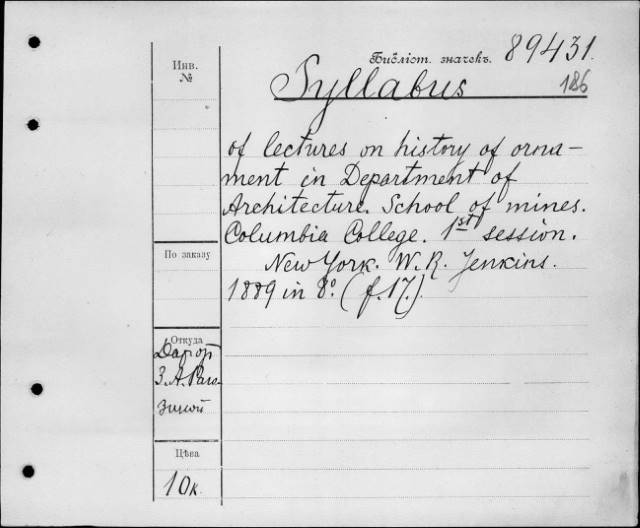 Библіот. значекъ. 89431.
186
Инв.
№
Syllabus
of lectures on history of orna-
ment in Department of
Architecture. School of mines.
Columbia College. 1st session.
New York. W. R. Jenkins.
1889 in 8º. (f. 17.).
По заказу
Откуда
Дар от
З. А. Раго-
зиной
Цѣна
10к.